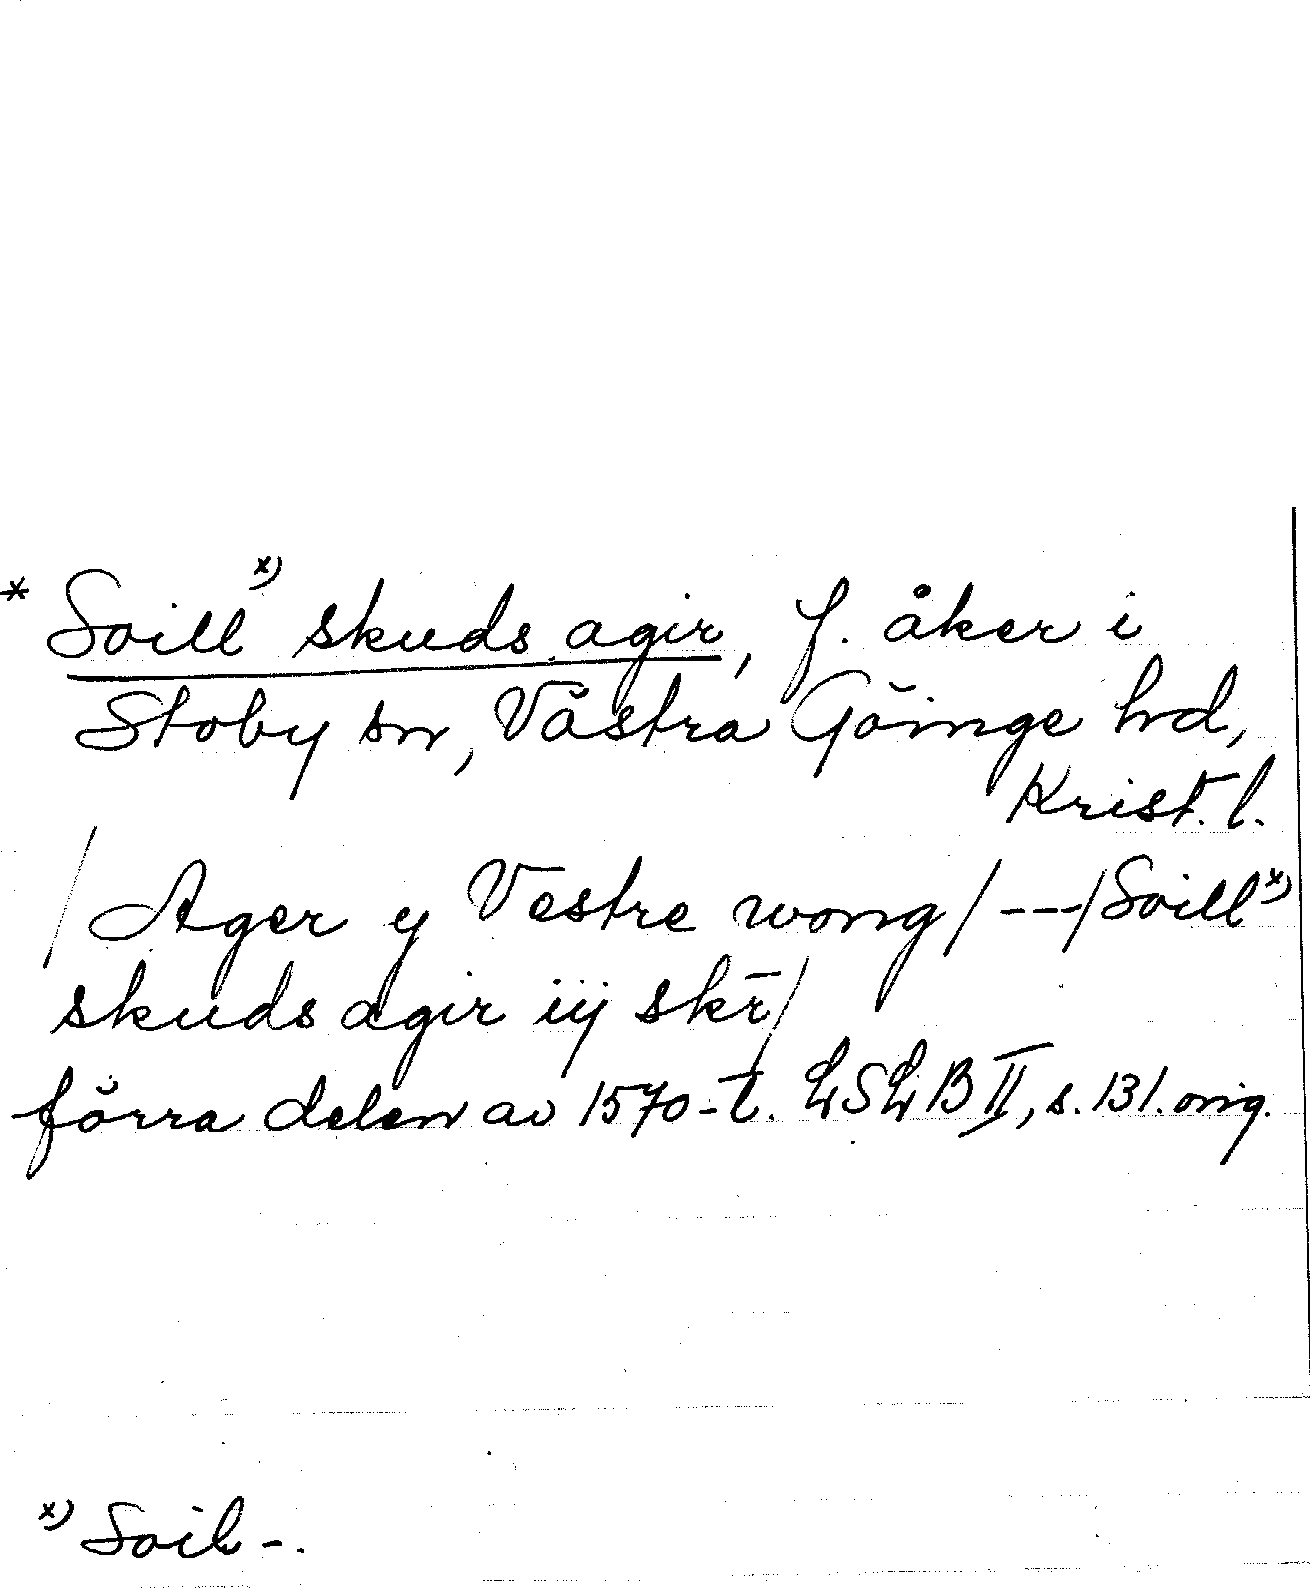 * Soill x) skuds agir, f. åker i
Stoby sn, Västra Göinge hd,
Krist. l.
/Ager y Vestre wong/---/Soill x)
skuds agir iij skr̄/
förra delen av 1570-t. LSLB II, s. 131. orig.
x) Soil-.